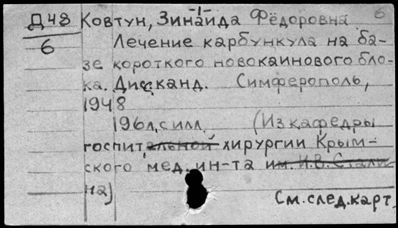 -1-
Д48 Ковтун, Зинаида Фёдоровна 6
6 Лечение карбункула на ба-
зе короткого новокаинового бло-
ка. Дис. канд. Симферополь,
1948
196л. с илл. (Из кафедры
госпитальной хирургии Крым-
ского мед. ин-та им. И.В. Стали
на)
См. след. карт.